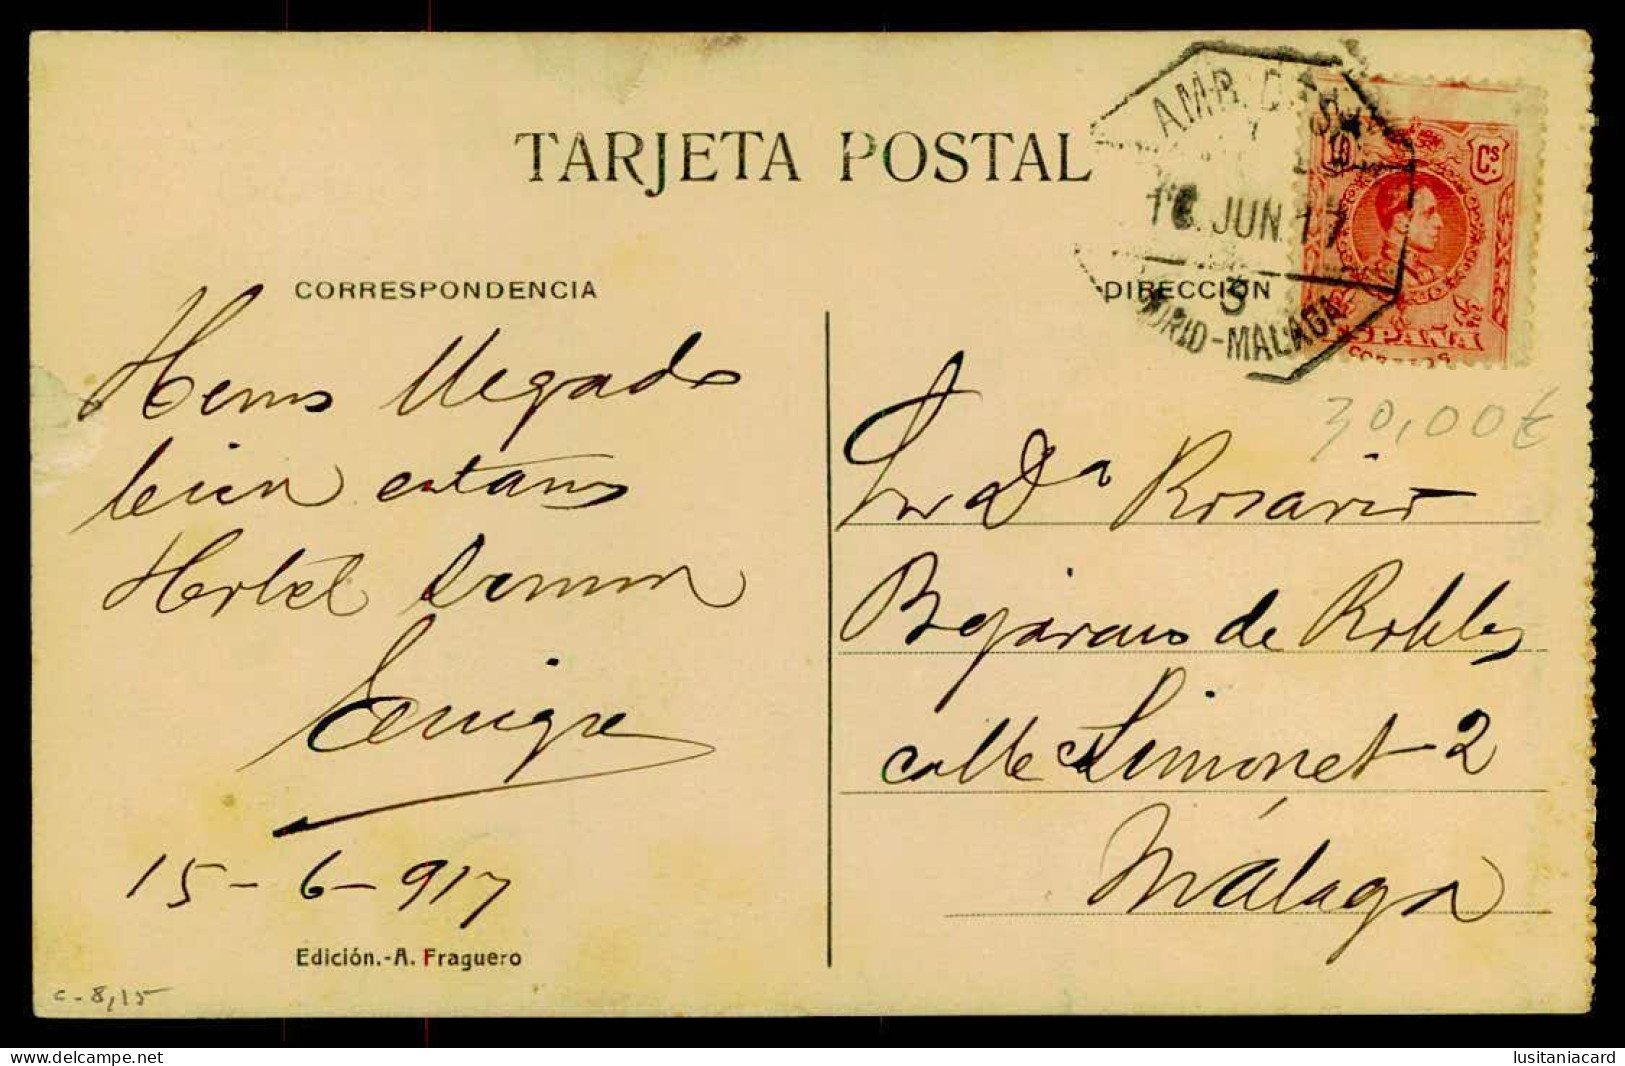 TARJETA POSTAL
AMB.
16 JUN. 17
3
MADRID-MALAGA
Cs.
ESPAÑA
CORREOS
CORRESPONDENCIA
DIRECCIÓN
30,00€
Hemos llegado
bien estamos
Hotel
Sra Dª Rosario
Bejarano de Robles
calle Simonet 2
Málaga
15-6-917
Edición.-A. Fraguero
c-8,15
www.delcampe.net
lusitaniacard